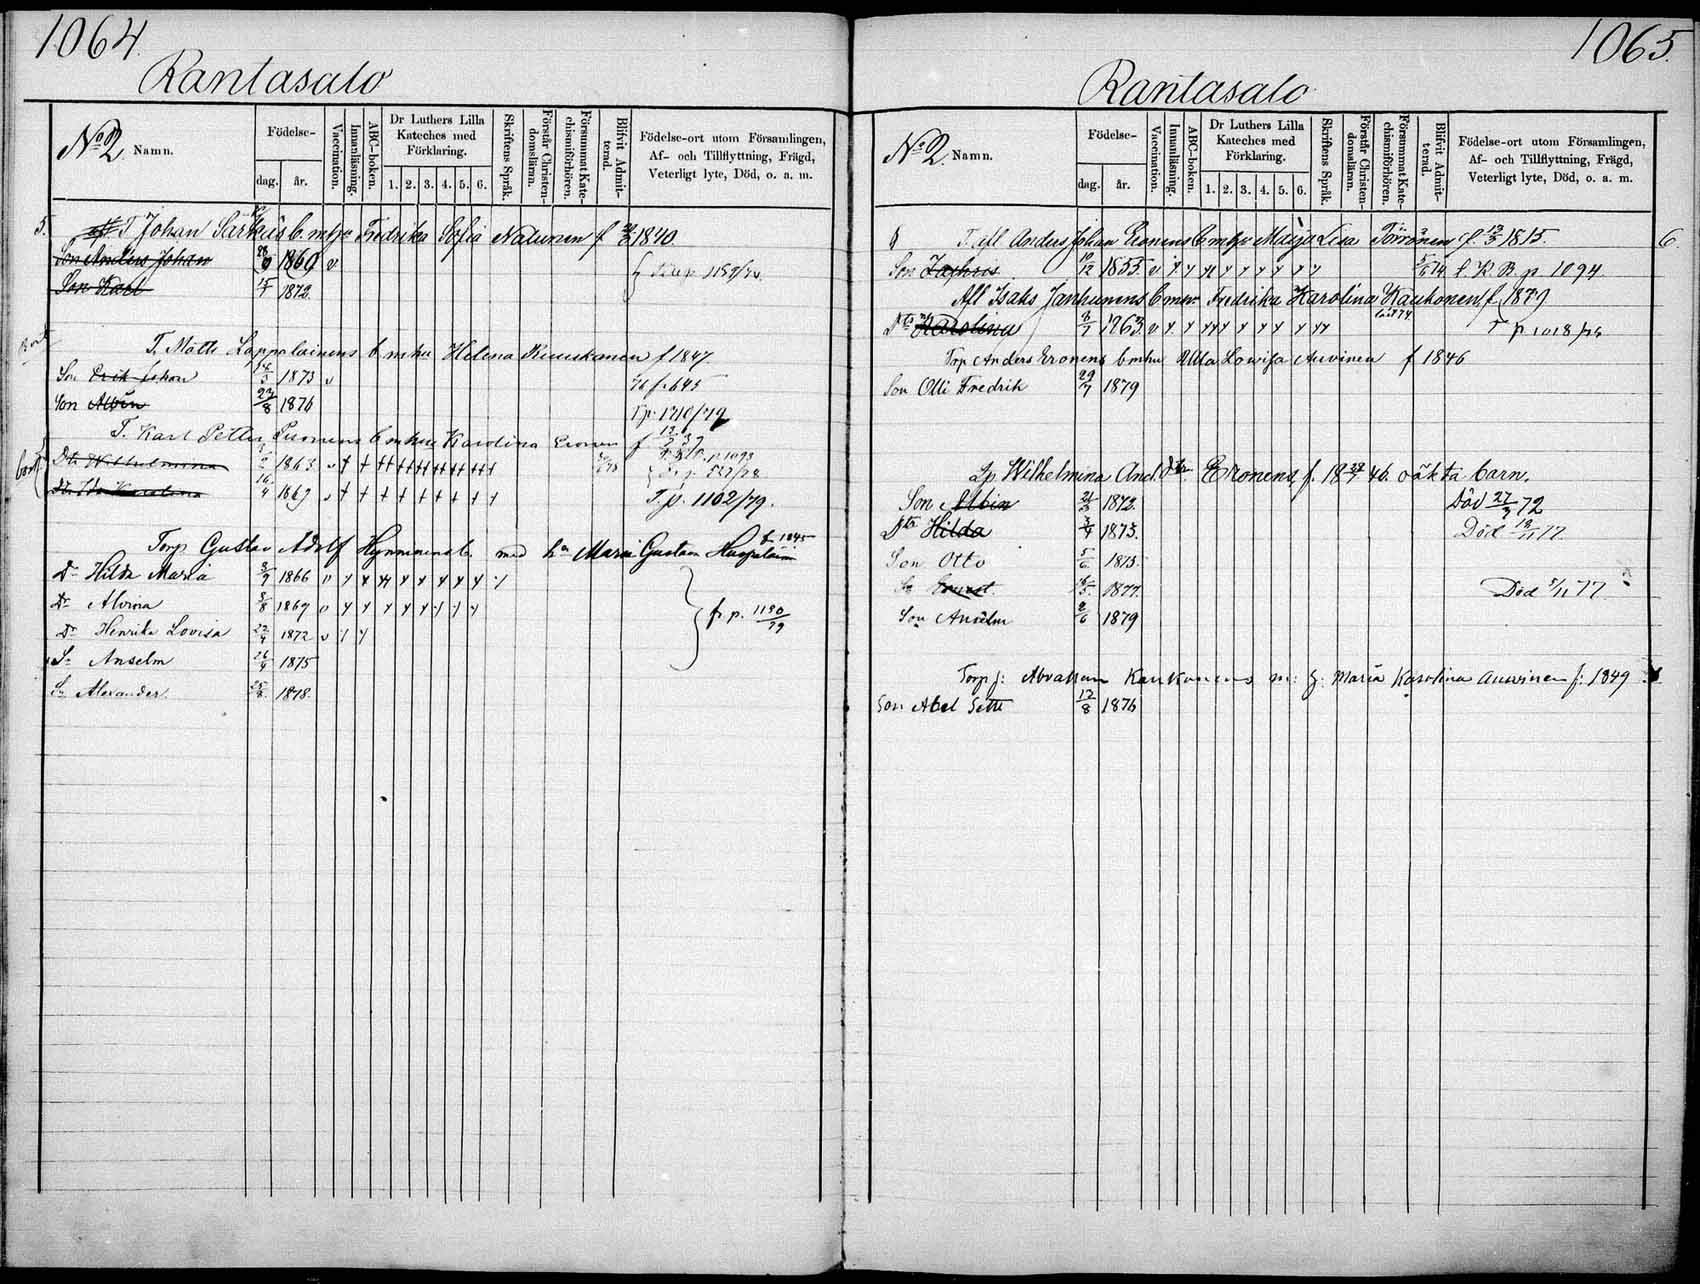 1064.
Rantasalo
No 2 Namn.
Födelse-
dag. år.
Vaccination.
Innanläsning.
ABC-boken.
Dr Luthers Lilla Kateches med Förklaring.
1. 2. 3. 4. 5. 6.
Skriftens Språk.
Förstår Christendomslärn.
Försummat Katechismiförhören.
Blifvit Admitterad.
Födelse-ort utom Församlingen, Af- och Tillflyttning, Frägd, Veterligt lyte, Död, o. a. m.
5. T Johan Särkäs b. m hu Fredrika Sofia Natunen f 1840
Son Anders Johan 1869 v
Son Karl 1872
T. Matts Lappalainens b m hu Helena f 1847
Son Erik Johan 1873 v
Son Albin 23/8 1876 T p. 1710/79
T. Karl Petter b m hu Karolina Eronen f
Dtr Wilhelmina 1863
Dtr Ida Karolina 16/4 1869 T. p. 1102/79.
Torp Gustav Adolf Hynninens b. med hu Maria Gustava f 1845
Dr Hilda Maria 3/9 1866
Dr Alvina 8/8 1869 fr p. 1190/79
Dr Henrika Lovisa 22/4 1872
Sn Anselm 26/4 1875
Sn Alexander 25/8 1878
1065.
Rantasalo
No 2 Namn.
Födelse-
dag. år.
Vaccination.
Innanläsning.
ABC-boken.
Dr Luthers Lilla Kateches med Förklaring.
1. 2. 3. 4. 5. 6.
Skriftens Språk.
Förstår Christendomslärn.
Försummat Katechismiförhören.
Blifvit Admitterad.
Födelse-ort utom Församlingen, Af- och Tillflyttning, Frägd, Veterligt lyte, Död, o. a. m.
T. afl Anders Johan Eronens b m hu Maija Lisa Törrönen f. 12/3 1815. 6.
Son Zachris 10/12 1855 f. K. B. p 1094
Afl Isaks Janhunens b m hu Fredrika Karolina Kauhonen f 1829
Dtr Karolina 8/7 1863 T p 1018/74
Torp Anders Eronens b m hu Ulla Lowisa Auvinen f 1846
Son Olli Fredrik 29/7 1879
Lp Wilhelmina And. dtr Eronens f. 18 46. oäkta barn.
Son Albin 1872. Död 27/3 72
Dtr Hilda 3/4 1873. Död 18/11 77
Son Otto 5/6 1875.
Sn Ernest 1877. Död 5/11 77
Son Anselm 2/6 1879
Torp j: Abraham Kaukonens m: h: Maria Karolina Auvinen f: 1849
Son Abel Sette 12/8 1876